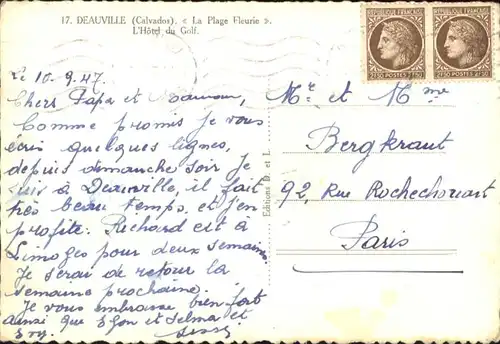 17. DEAUVILLE (Calvados). « La Plage Fleurie ».
L'Hôtel du Golf.
Le 10.9.47.
Chers Papa et Maman,
Comme promis je vous
écris quelques lignes,
depuis dimanche soir je
suis à Deauville, il fait
très beau temps et j'en
profite. Richard est à
Limoges pour deux semaines.
Je serai de retour la
semaine prochaine.
Je vous embrasse bien fort
ainsi que Egon et Selma et
Editions D. et L.
REPUBLIQUE FRANÇAISE
2F50 POSTES 2F50
REPUBLIQUE FRANÇAISE
2F50 POSTES 2F50
Mr et Mme
Bergkraut
92, Rue Rochechouart
Paris